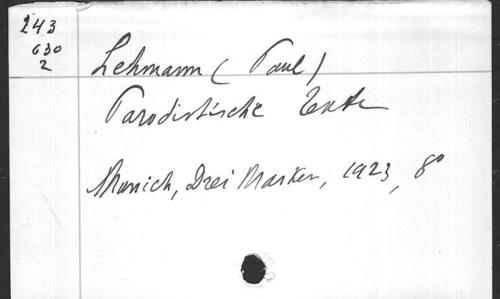 243
630
2
Lehmann (Paul)
Parodistische Texte
Munich, Drei Masken, 1923, 8º